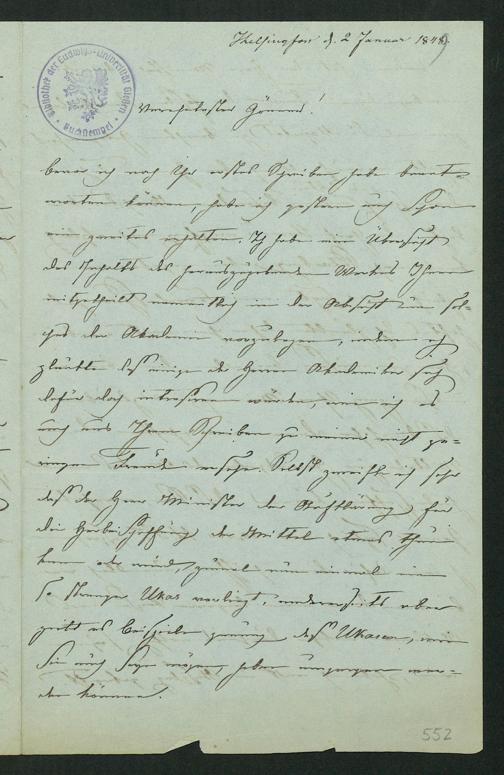 Helsingfors d. 2 Januar 1849
Bibliothek der Ludwigs-Universität Gießen
Buchstempel
Verehrtester Gönner!
bevor ich noch Ihr erstes Schreiben habe beant-
worten können, habe ich gestern auch schon
ein zweites erhalten. Ich habe eine Übersicht
des Inhalts des herauszugebenden Werkes Ihnen
mitgetheilt namentlich in der Absicht um sol-
ches der Akademie vorzulegen, indem ich
glaubte daß einige der Herren Akademiker sich
dafür doch interessiren würden, wie ich es
auch aus Ihrem Schreiben zu meiner nicht ge-
ringen Freude ersehe. Selbst zweifle ich sehr
daß der Herr Minister der Aufklärung für
die Herbeischaffung der Mittel etwas thun
kann oder würde, zumal nun einmal ein
so strenger Ukas vorliegt, andererseits aber
giebt es Beispiele genug daß Ukasen, wie
Sie auch sein mögen, haben umgangen wer-
den können.
552